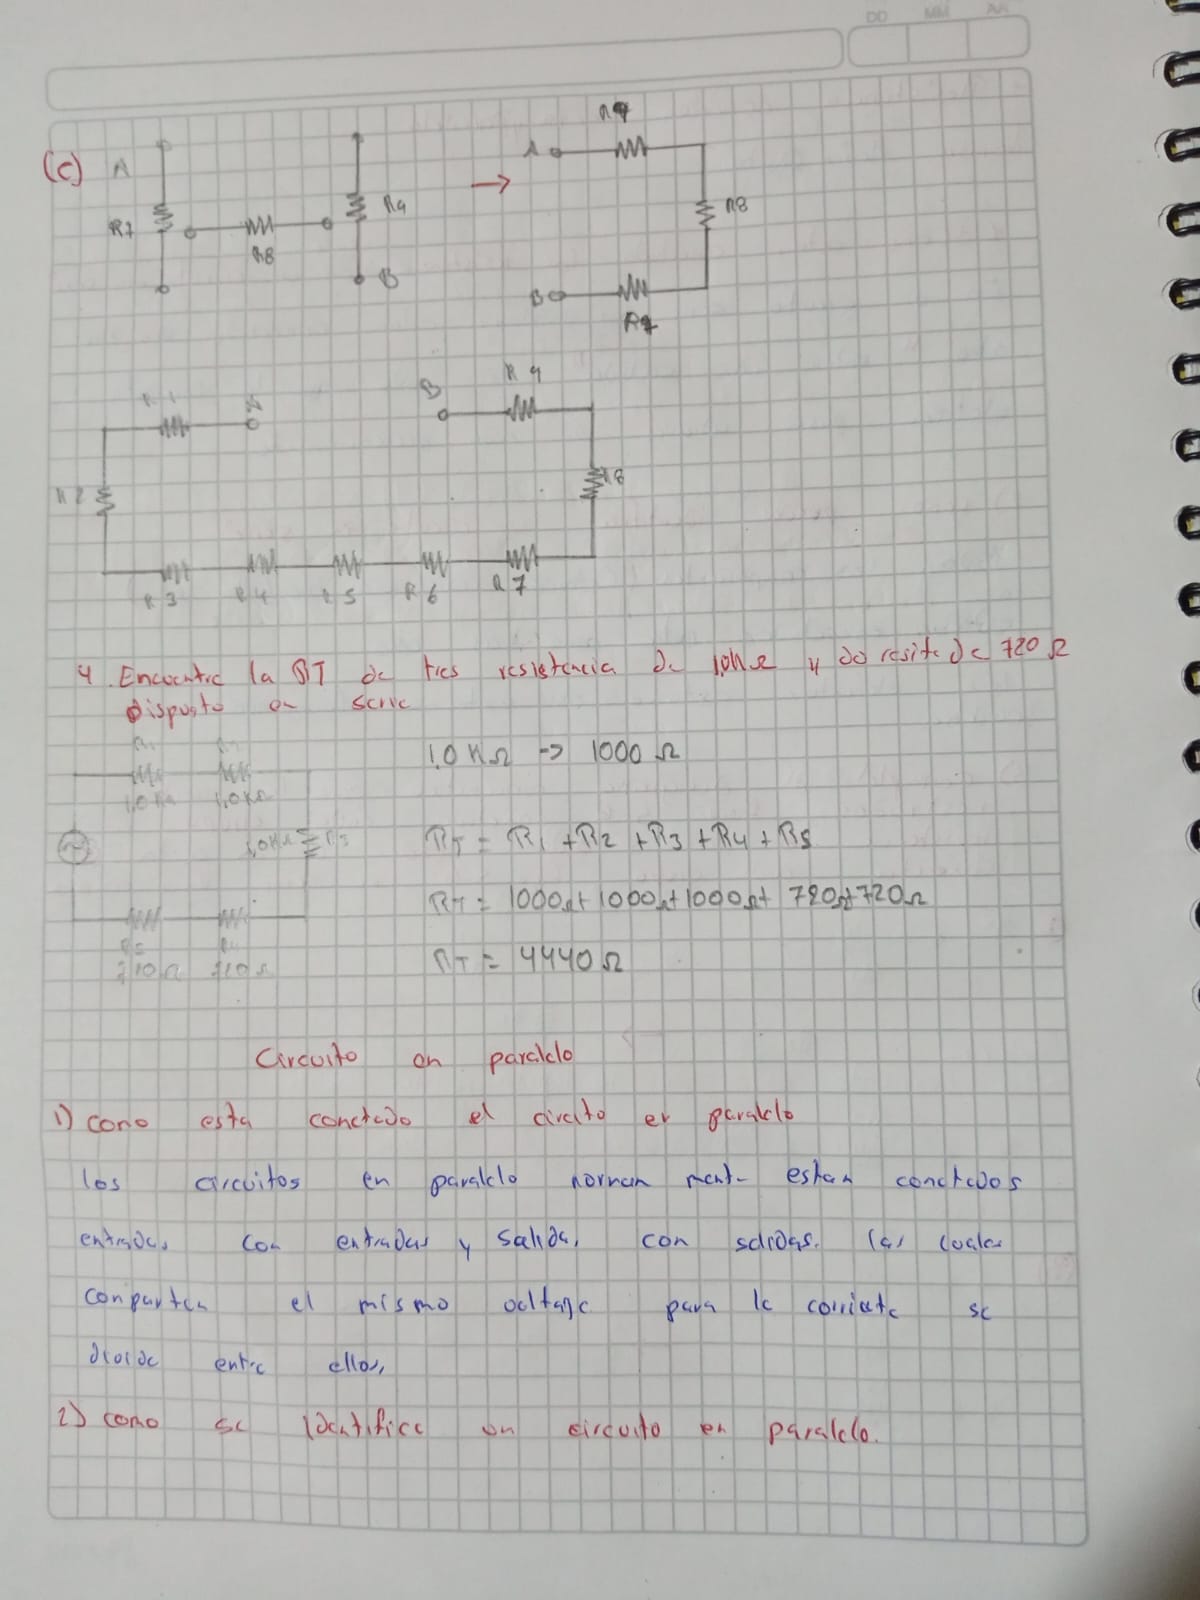 DD MM AA
(c) A
R7
R8
R9
B
→
A
R9
R8
B
R7
A
R2
R3
R4
R5
R6
R7
B
R9
R8
4. Encuentre la RT de tres resistencia de 1,0KΩ y do resite de 720 Ω
Dispusto en serie
1,0KΩ 1,0KΩ
1.0 KΩ -> 1000 Ω
1,0KΩ R3
RT = R1 + R2 + R3 + R4 + R5
RT = 1000Ω+1000Ω+1000Ω+ 720Ω+720Ω
RT = 4440Ω
Circuito en paralelo
1) como esta conctado el circito en paralelo
los circuitos en paralelo norman ment- estan conctados
entradas con entradas y salida, con salidas. las cuales
conparten el mismo voltage para la corriente se
divide entre ellos,
2) como se identifica un circuito en paralelo.